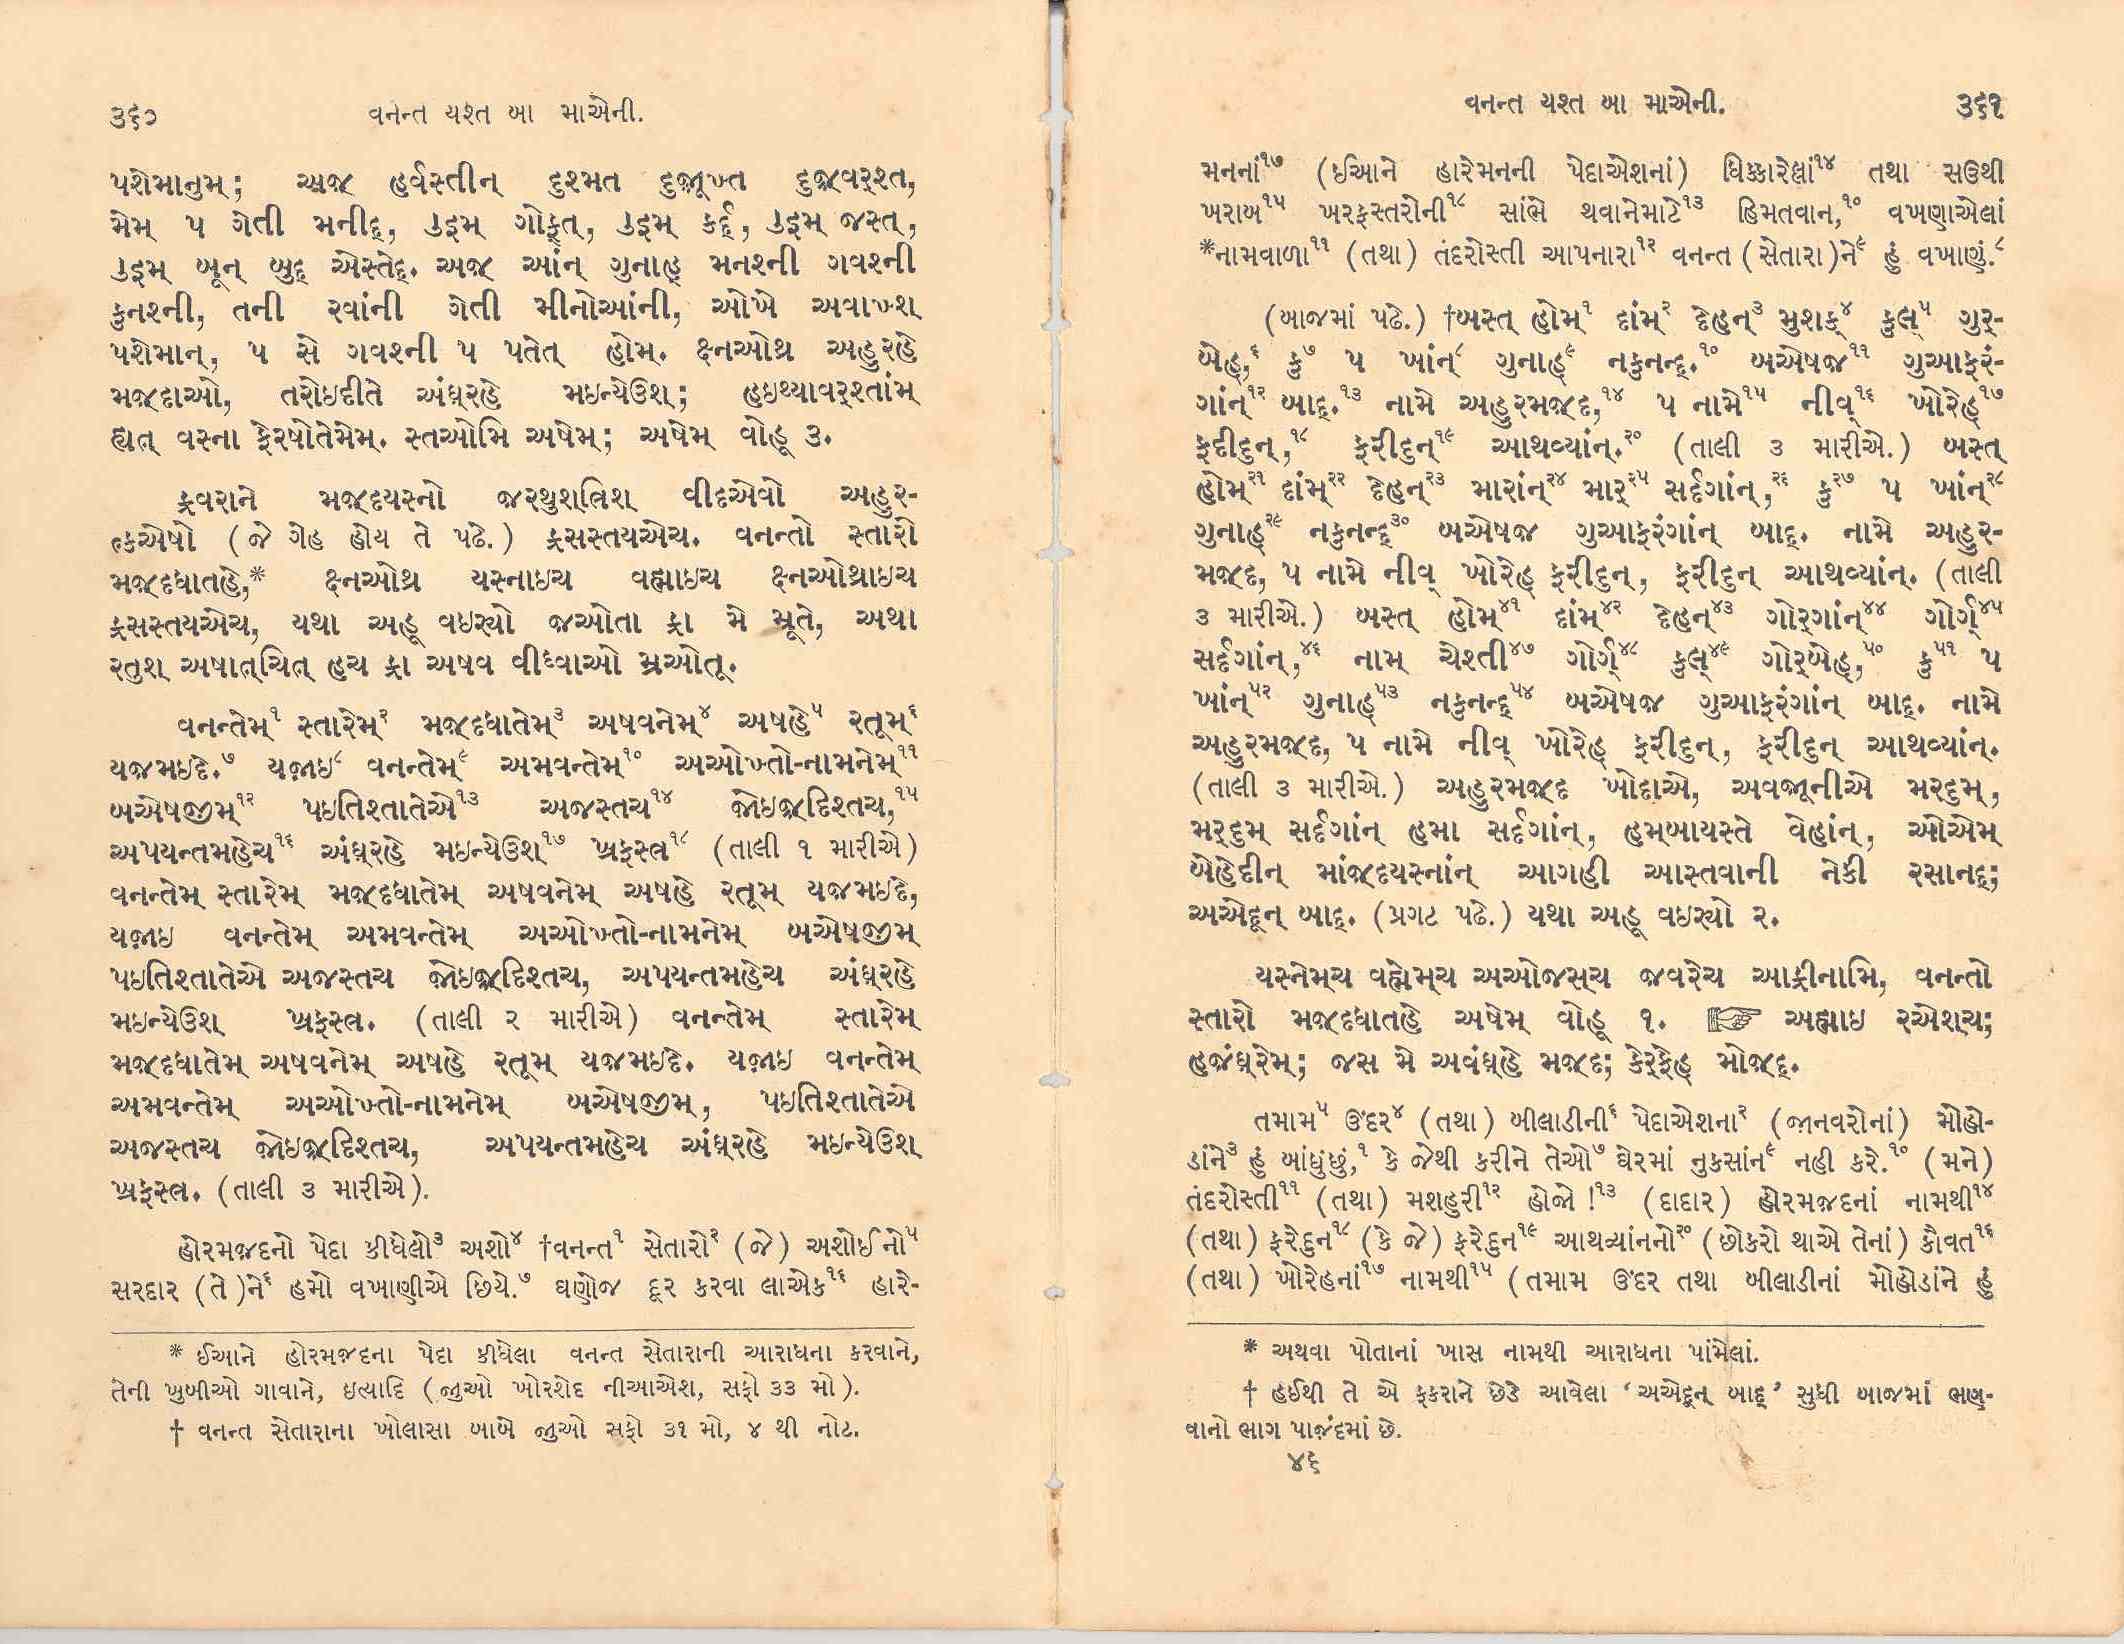 ૩૬૦ વનન્ત યશ્ત બા માએની.
પશેમાનુમ્; અજ઼ હર્વસ્તીન્ દુશ્મત દુજ઼ૂખ્ત દુજ઼વર્શ્ત,
મેમ્ પ ગેતી મનીદ્, ઉઇમ્ ગોફ્ત્, ઉઇમ્ કર્દ્, ઉઇમ્ જસ્ત્,
ઉઇમ્ બૂન્ બુદ્ એસ્તેદ્. અજ઼ આંન્ ગુનાહ્ મનશ્ની ગવશ્ની
કુનશ્ની, તની રવાંની ગેતી મીનોઆંની, ઓખે અવાખ્શ્
પશેમાન્, પ સે ગવશ્ની પ પતેત્ હોમ્. ક્ષ્નઓથ્ર અહુરહે
મજ઼્દાઓ, તરોઇદીતે અંઘ્રહે મઇન્યેઉશ્; હઇથ્યાવર્શ્તાંમ્
હ્યત્ વસ્ના ફેરષોતેમેમ્. સ્તઓમિ અષેમ્; અષેમ્ વોહૂ ૩.
ફ્રવરાને મજ઼્દયસ્નો જ઼રથુશ્ત્રિશ્ વીદએવો અહુર-
ત્કએષો (જે ગેહ હોય તે પઢે.) ફ્રસસ્તયએચ. વનન્તો સ્તારો
મજ઼્દધાતહે,* ક્ષ્નઓથ્ર યસ્નાઇચ વહ્માઇચ ક્ષ્નઓથ્રાઇચ
ફ્રસસ્તયએચ, યથા અહૂ વઇર્યો જ઼ઓતા ફ્રા મે મ્રૂતે, અથા
રતુશ્ અષાત્ચિત્ હચ ફ્રા અષવ વીધ્વાઓ મ્રઓતૂ.
વનન્તેમ્૧ સ્તારેમ્૨ મજ઼્દધાતેમ્૩ અષવનેમ્૪ અષહે૫ રતૂમ્૬
યજ઼મઇદે.૭ યજ઼ાઇ૮ વનન્તેમ્૯ અમવન્તેમ્૧૦ અઓખ્તો-નામનેમ્૧૧
બએષજ઼ીમ્૧૨ પઇતિશ્તાતેએ૧૩ અજસ્તચ૧૪ જ઼ોઇજ઼્દિશ્તચ,૧૫
અપયન્તમહેચ૧૬ અંઘ્રહે મઇન્યેઉશ્૧૭ ખ્રફસ્ત્ર૧૮ (તાલી ૧ મારીએ)
વનન્તેમ્ સ્તારેમ્ મજ઼્દધાતેમ્ અષવનેમ્ અષહે રતૂમ્ યજ઼મઇદે,
યજ઼ાઇ વનન્તેમ્ અમવન્તેમ્ અઓખ્તો-નામનેમ્ બએષજ઼ીમ્
પઇતિશ્તાતેએ અજસ્તચ જ઼ોઇજ઼્દિશ્તચ, અપયન્તમહેચ અંઘ્રહે
મઇન્યેઉશ્ ખ્રફસ્ત્ર. (તાલી ૨ મારીએ) વનન્તેમ્ સ્તારેમ્
મજ઼્દધાતેમ્ અષવનેમ્ અષહે રતૂમ્ યજ઼મઇદે. યજ઼ાઇ વનન્તેમ્
અમવન્તેમ્ અઓખ્તો-નામનેમ્ બએષજ઼ીમ્, પઇતિશ્તાતેએ
અજસ્તચ જ઼ોઇજ઼્દિશ્તચ, અપયન્તમહેચ અંઘ્રહે મઇન્યેઉશ્
ખ્રફસ્ત્ર. (તાલી ૩ મારીએ).
હોરમજ઼દનો પેદા કીધેલો૩ અશો૪ †વનન્ત૧ સેતારો૨ (જે) અશોઈનો૫
સરદાર (તે)ને૬ હમો વખાણીએ છિયે.૭ ઘણોજ દૂર કરવા લાએક૧૬ હારે-
* ઈઆને હોરમજ઼દના પેદા કીધેલા વનન્ત સેતારાની આરાધના કરવાને,
તેની ખુબીઓ ગાવાને, ઇત્યાદિ (જુઓ ખોરશેદ નીઆએશ, સફો ૩૩ મો).
† વનન્ત સેતારાના ખોલાસા બાબે જુઓ સફો ૩૧ મો, ૪ થી નોટ.
વનન્ત યશ્ત બા માએની. ૩૬૧
મનનાં૧૭ (ઈઆને હારેમનની પેદાએશનાં) ધિક્કારેલાં૧૪ તથા સઉથી
ખરાબ૧૫ ખરફસ્તરોની૧૮ સાંભે થવાનેમાટે૧૩ હિમતવાન,૧૦ વખણાએલાં
*નામવાળા૧૧ (તથા) તંદરોસ્તી આપનારા૧૨ વનન્ત (સેતારા)ને૯ હું વખાણું.૮
(બાજમાં પઢે.) †બસ્ત્ હોમ્૧ દાંમ્૨ દેહન્૩ મુશક્૪ કુલ્૫ ગુર્-
બેહ્,૬ કુ૭ પ ખાંન્૮ ગુનાહ્૯ નકુનન્દ્.૧૦ બએષજ઼૧૧ ગુઆફરં-
ગાંન્૧૨ બાદ્.૧૩ નામે અહુરમજ઼્દ,૧૪ પ નામે૧૫ નીવ્૧૬ ખોરેહ્૧૭
ફદીદુન્,૧૮ ફરીદુન્૧૯ આથવ્યાંન્.૨૦ (તાલી ૩ મારીએ.) બસ્ત્
હોમ્૨૧ દાંમ્૨૨ દેહન્૨૩ મારાંન્૨૪ માર્૨૫ સર્દગાંન્,૨૬ કુ૨૭ પ ખાંન્૨૮
ગુનાહ્૨૯ નકુનન્દ્૩૦ બએષજ઼ ગુઆફરંગાંન્ બાદ્. નામે અહુર-
મજ઼્દ, પ નામે નીવ્ ખોરેહ્ ફરીદુન્, ફરીદુન્ આથવ્યાંન્. (તાલી
૩ મારીએ.) બસ્ત્ હોમ્૪૧ દાંમ્૪૨ દેહન્૪૩ ગોર્ગાંન્૪૪ ગોર્ગ્૪૫
સર્દગાંન્,૪૬ નામ્ ચેશ્તી૪૭ ગોર્ગ્૪૮ કુલ્૪૯ ગોર્બેહ્,૫૦ કુ૫૧ પ
ખાંન્૫૨ ગુનાહ્૫૩ નકુનન્દ્૫૪ બએષજ઼ ગુઆફરંગાંન્ બાદ્. નામે
અહુરમજ઼્દ, પ નામે નીવ્ ખોરેહ્ ફરીદુન્, ફરીદુન્ આથવ્યાંન્.
(તાલી ૩ મારીએ.) અહુરમજ઼્દ ખોદાએ, અવજ઼ૂનીએ મરદુમ્,
મર્દુમ્ સર્દગાંન્ હમા સર્દગાંન્, હમ્બાયસ્તે વેહાંન્, ઓએમ્
બેહેદીન્ માંજ઼્દયસ્નાંન્ આગહી આસ્તવાની નેકી રસાનદ્;
અએદૂન્ બાદ્. (પ્રગટ પઢે.) યથા અહૂ વઇર્યો ૨.
યસ્નેમ્ચ વહ્મેમ્ચ અઓજસ્ચ જ઼વરેચ આફ્રીનામિ, વનન્તો
સ્તારો મજ઼્દધાતહે અષેમ્ વોહૂ ૧. ☞ અહ્માઇ રએશ્ચ;
હજ઼ંઘ્રેમ્; જસ મે અવંઘ્હે મજ઼્દ; કેર્ફેહ્ મોજ઼્દ્.
તમામ૫ ઊંદર૪ (તથા) બીલાડીની૬ પેદાએશના૨ (જાનવરોનાં) મોહો-
ડાંને૩ હું બાંધુંછું,૧ કે જેથી કરીને તેઓ૭ ઘેરમાં નુકસાંન૯ નહી કરે.૧૦ (મને)
તંદરોસ્તી૧૧ (તથા) મશહુરી૧૨ હોજો !૧૩ (દાદાર) હોરમજ઼દનાં નામથી૧૪
(તથા) ફરેદુન૧૮ (કે જે) ફરેદુન૧૯ આથવ્યાંનનો૨૦ (છોકરો થાએ તેનાં) કૌવત૧૬
(તથા) ખોરેહનાં૧૭ નામથી૧૫ (તમામ ઊંદર તથા બીલાડીનાં મોહોડાંને હું
* અથવા પોતાનાં ખાસ નામથી આરાધના પાંમેલાં.
† હઈથી તે એ ફકરાને છેડે આવેલા ‘અએદૂન્ બાદ્’ સુધી બાજમાં ભણ-
વાનો ભાગ પાજ઼ંદમાં છે.
૪૬